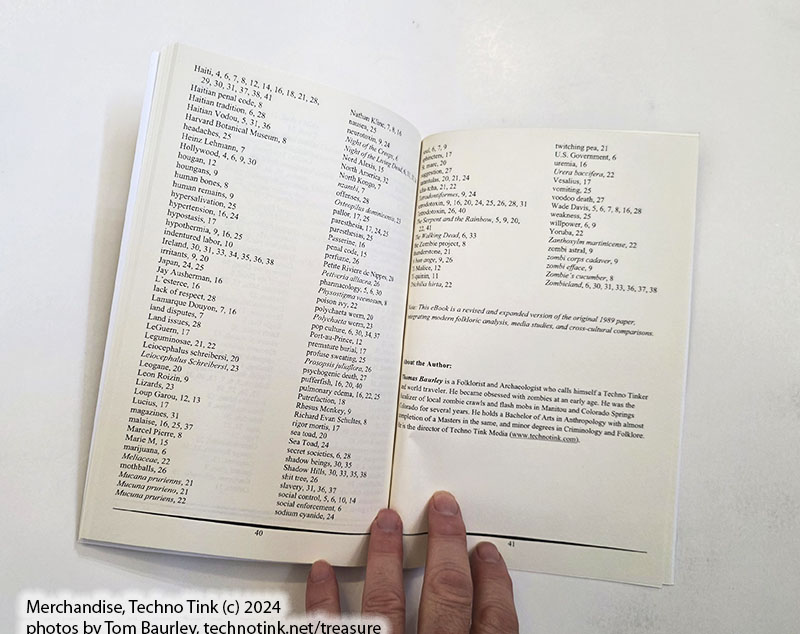 Haiti, 4, 6, 7, 8, 12, 14, 16, 18, 21, 28,
29, 30, 31, 37, 38, 41
Haitian penal code, 8
Haitian tradition, 6, 28
Haitian Vodou, 5, 31, 36
Harvard Botanical Museum, 8
headaches, 25
Heinz Lehmann, 7
Hollywood, 4, 6, 9, 30
hougan, 12
houngans, 9
human bones, 8
human remains, 9
hypersalivation, 25
hypertension, 16, 24
hypostasis, 17
hypothermia, 9, 16, 25
indentured labor, 10
Ireland, 30, 31, 33, 34, 35, 36, 38
irritants, 9, 20
Japan, 24, 25
Jay Ausherman, 16
L'esterce, 16
lack of respect, 28
Lamarque Douyon, 7, 16
land disputes, 7
Land issues, 28
LeGuern, 17
Leguminosae, 21, 22
Leiocephalus schreibersi, 20
Leiocephalus Schreibersi, 23
Leogane, 20
Leon Roizin, 9
Lizards, 23
Loup Garou, 12, 13
Lucius, 17
magazines, 31
malaise, 16, 25, 37
Marcel Pierre, 8
Marie M, 15
marijuana, 6
Meliaceae, 22
mothballs, 26
Mucana pruriens, 21
Mucuna prurieno, 21
Mucuna pruriens, 22
Nathan Kline, 7, 8, 16
nausea, 25
neurotoxin, 9, 24
Night of the Creeps, 6
Night of the Living Dead,
Nord Alexis, 15
North America, 32
North Kongo, 7
nzambi, 7
offenses, 28
Osteopilus dominicensis, 23
pallor, 17, 25
paresthesia, 17, 24, 25
paresthesias, 25
Passerine, 16
penal code, 15
perfume, 26
Petite Riviere de Nippes, 28
Petiveria alliacea, 26
pharmacology, 5, 6, 30
Physostigma venenosum, 8
poison ivy, 22
polychaeta worm, 20
Polychaeta worms, 23
pop culture, 6, 30, 34, 37
Port-au-Prince, 12
premature burial, 17
profuse sweating, 25
Prosopis juliaflora, 26
psychogenic death, 27
pufferfish, 16, 20, 40
pulmonary edema, 16, 22, 25
Putrefaction, 18
Rhesus Monkey, 9
Richard Evan Schultes, 8
rigor mortis, 17
sea toad, 20
Sea Toad, 24
secret societies, 6, 28
shadow beings, 30, 35
Shadow Hills, 30, 33, 35, 38
shit tree, 26
slavery, 31, 36, 37
social control, 5, 6, 10, 14
social enforcement, 6
sodium cyanide, 24
40
6, 7, 9
17
marc, 20
27
20, 21, 24
21, 22
9, 24
9, 16, 20, 24, 25, 26, 28, 31
26, 40
Serpent and the Rainbow, 5, 9, 20,
22, 41
Walking Dead, 6, 33
Zombie project, 8
21
ange, 9, 26
Malice, 12
11
hirta, 22
twitching pea, 21
U.S. Government, 6
uremia, 16
Urera baccifera, 22
Vesalius, 17
vomiting, 25
voodoo death, 27
Wade Davis, 5, 6, 7, 8, 16, 28
weakness, 25
willpower, 6, 9
Yoruba, 22
Zanthoxylm martinicense, 22
zombi astral, 9
zombi corps cadaver, 9
zombi efface, 9
Zombie's cucumber, 8
Zombieland, 6, 30, 31, 33, 36, 37, 38
Note: This eBook is a revised and expanded version of the original 1989 paper,
integrating modern folkloric analysis, media studies, and cross-cultural comparisons.
About the Author:
Thomas Baurley is a Folklorist and Archaeologist who calls himself a Techno Tinker
and world traveler. He became obsessed with zombies at an early age. He was the
of local zombie crawls and flash mobs in Manitou and Colorado Springs
Colorado for several years. He holds a Bachelor of Arts in Anthropology with almost
completion of a Masters in the same, and minor degrees in Criminology and Folklore.
is the director of Techno Tink Media (www.technotink.com).
41
Merchandise, Techno Tink (c) 2024
photos by Tom Baurley, technotink.net/treasure